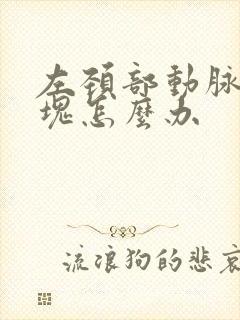 左頚部動脉
塊怎麼办
流浪狗的悲哀